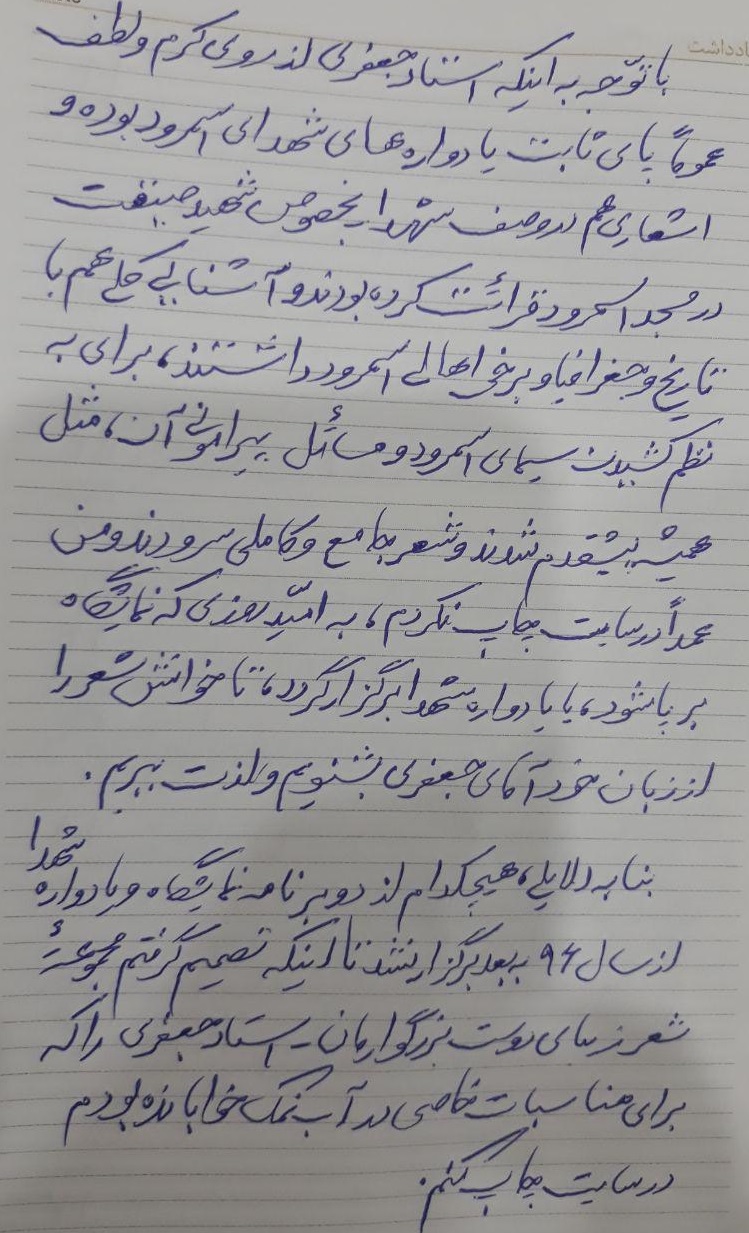 یادداشت
با توّجه به اینکه استاد جعفری از روی کرم و لطف
عموماً پای ثابت یادواره های شهدای اسمرود بوده و
اشعاری هم در وصف شهدا بخصوص شهید
در مسجد اسمرود قرائت کرده بودند و آشنایی کلی هم با
تاریخ و جغرافیا و برخی اهالی اسمرود داشتند، برای به
نظم کشیدن سیمای اسمرود و مسائل پیرامونی آن، مثل
همیشه پیشقدم شدند و شعر جامع و کاملی سرودند و من
عمداً در سایت چاپ نکردم، به امّید روزی که نمایشگاه
برپا شود، یا یادواره شهدا برگزار گردد، تا خوانش شعر را
از زبان خود آقای جعفری بشنویم و لذت ببریم.
بنا به دلایلی، هیچکدام از دو برنامه نمایشگاه و یادواره شهدا
از سال ۹۶ به بعد برگزار نشد تا اینکه تصمیم گرفتم مجموعهٔ
شعر زیبای دوست بزرگوارمان - استاد جعفری را که
برای مناسبات خاصی در آب نمک خوابانده بودم
در سایت چاپ کنم.